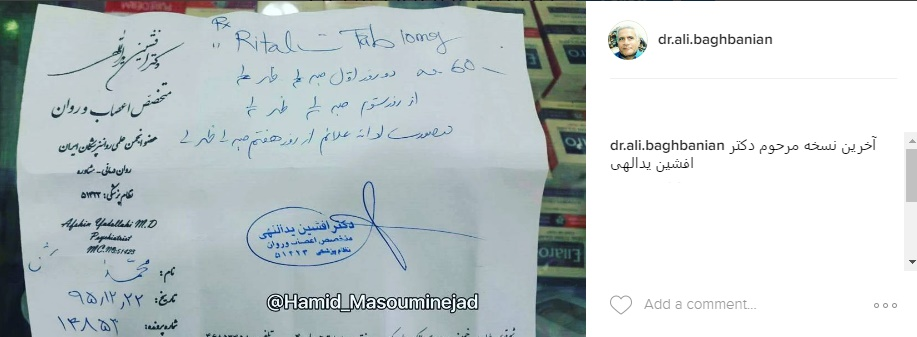 Rx
" Ritalin Tab 10mg
No 60
دو روز اول صبح ½ ظهر ½
از روز سوم صبح 1 ظهر ½
در صورت ادامه علائم از روز هفتم صبح 1 ظهر 1
دکتر افشین یداللهی
متخصص اعصاب و روان
عضو انجمن علمی روانپزشکان ایران
روان درمانی - مشاوره
نظام پزشکی: ۵۱۲۲۳
Afshin Yadallahi M.D
Psychiatrist
نام:
تاریخ: ۹۵,۱۲,۲۲
شماره پرونده: ۱۴۸۵۳
دکتر افشین یداللهی
متخصص اعصاب و روان
نظام پزشکی
@Hamid_Masouminejad
dr.ali.baghbanian
dr.ali.baghbanian آخرین نسخه مرحوم دکتر
افشین یدالهی
Add a comment...